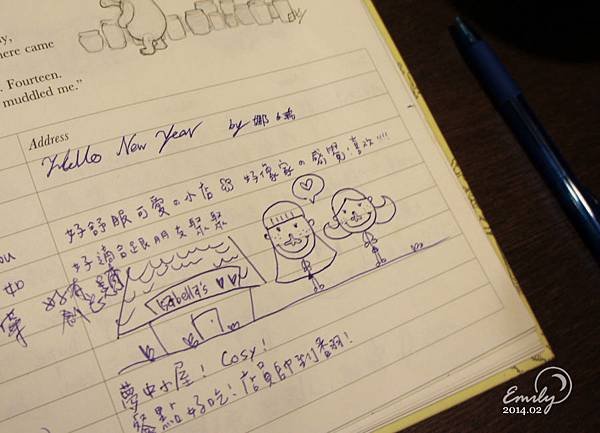 here came
. Fourteen.
muddled me."
Address
Hello New Year by 娜
好舒服可愛の小店 好像家の感覺!喜歡!!!!
好適合跟朋友聚聚
ou
如
Isabella's
夢中小屋! Cosy!
餐點好吃!店員帥到翻!
Emily
2014.02